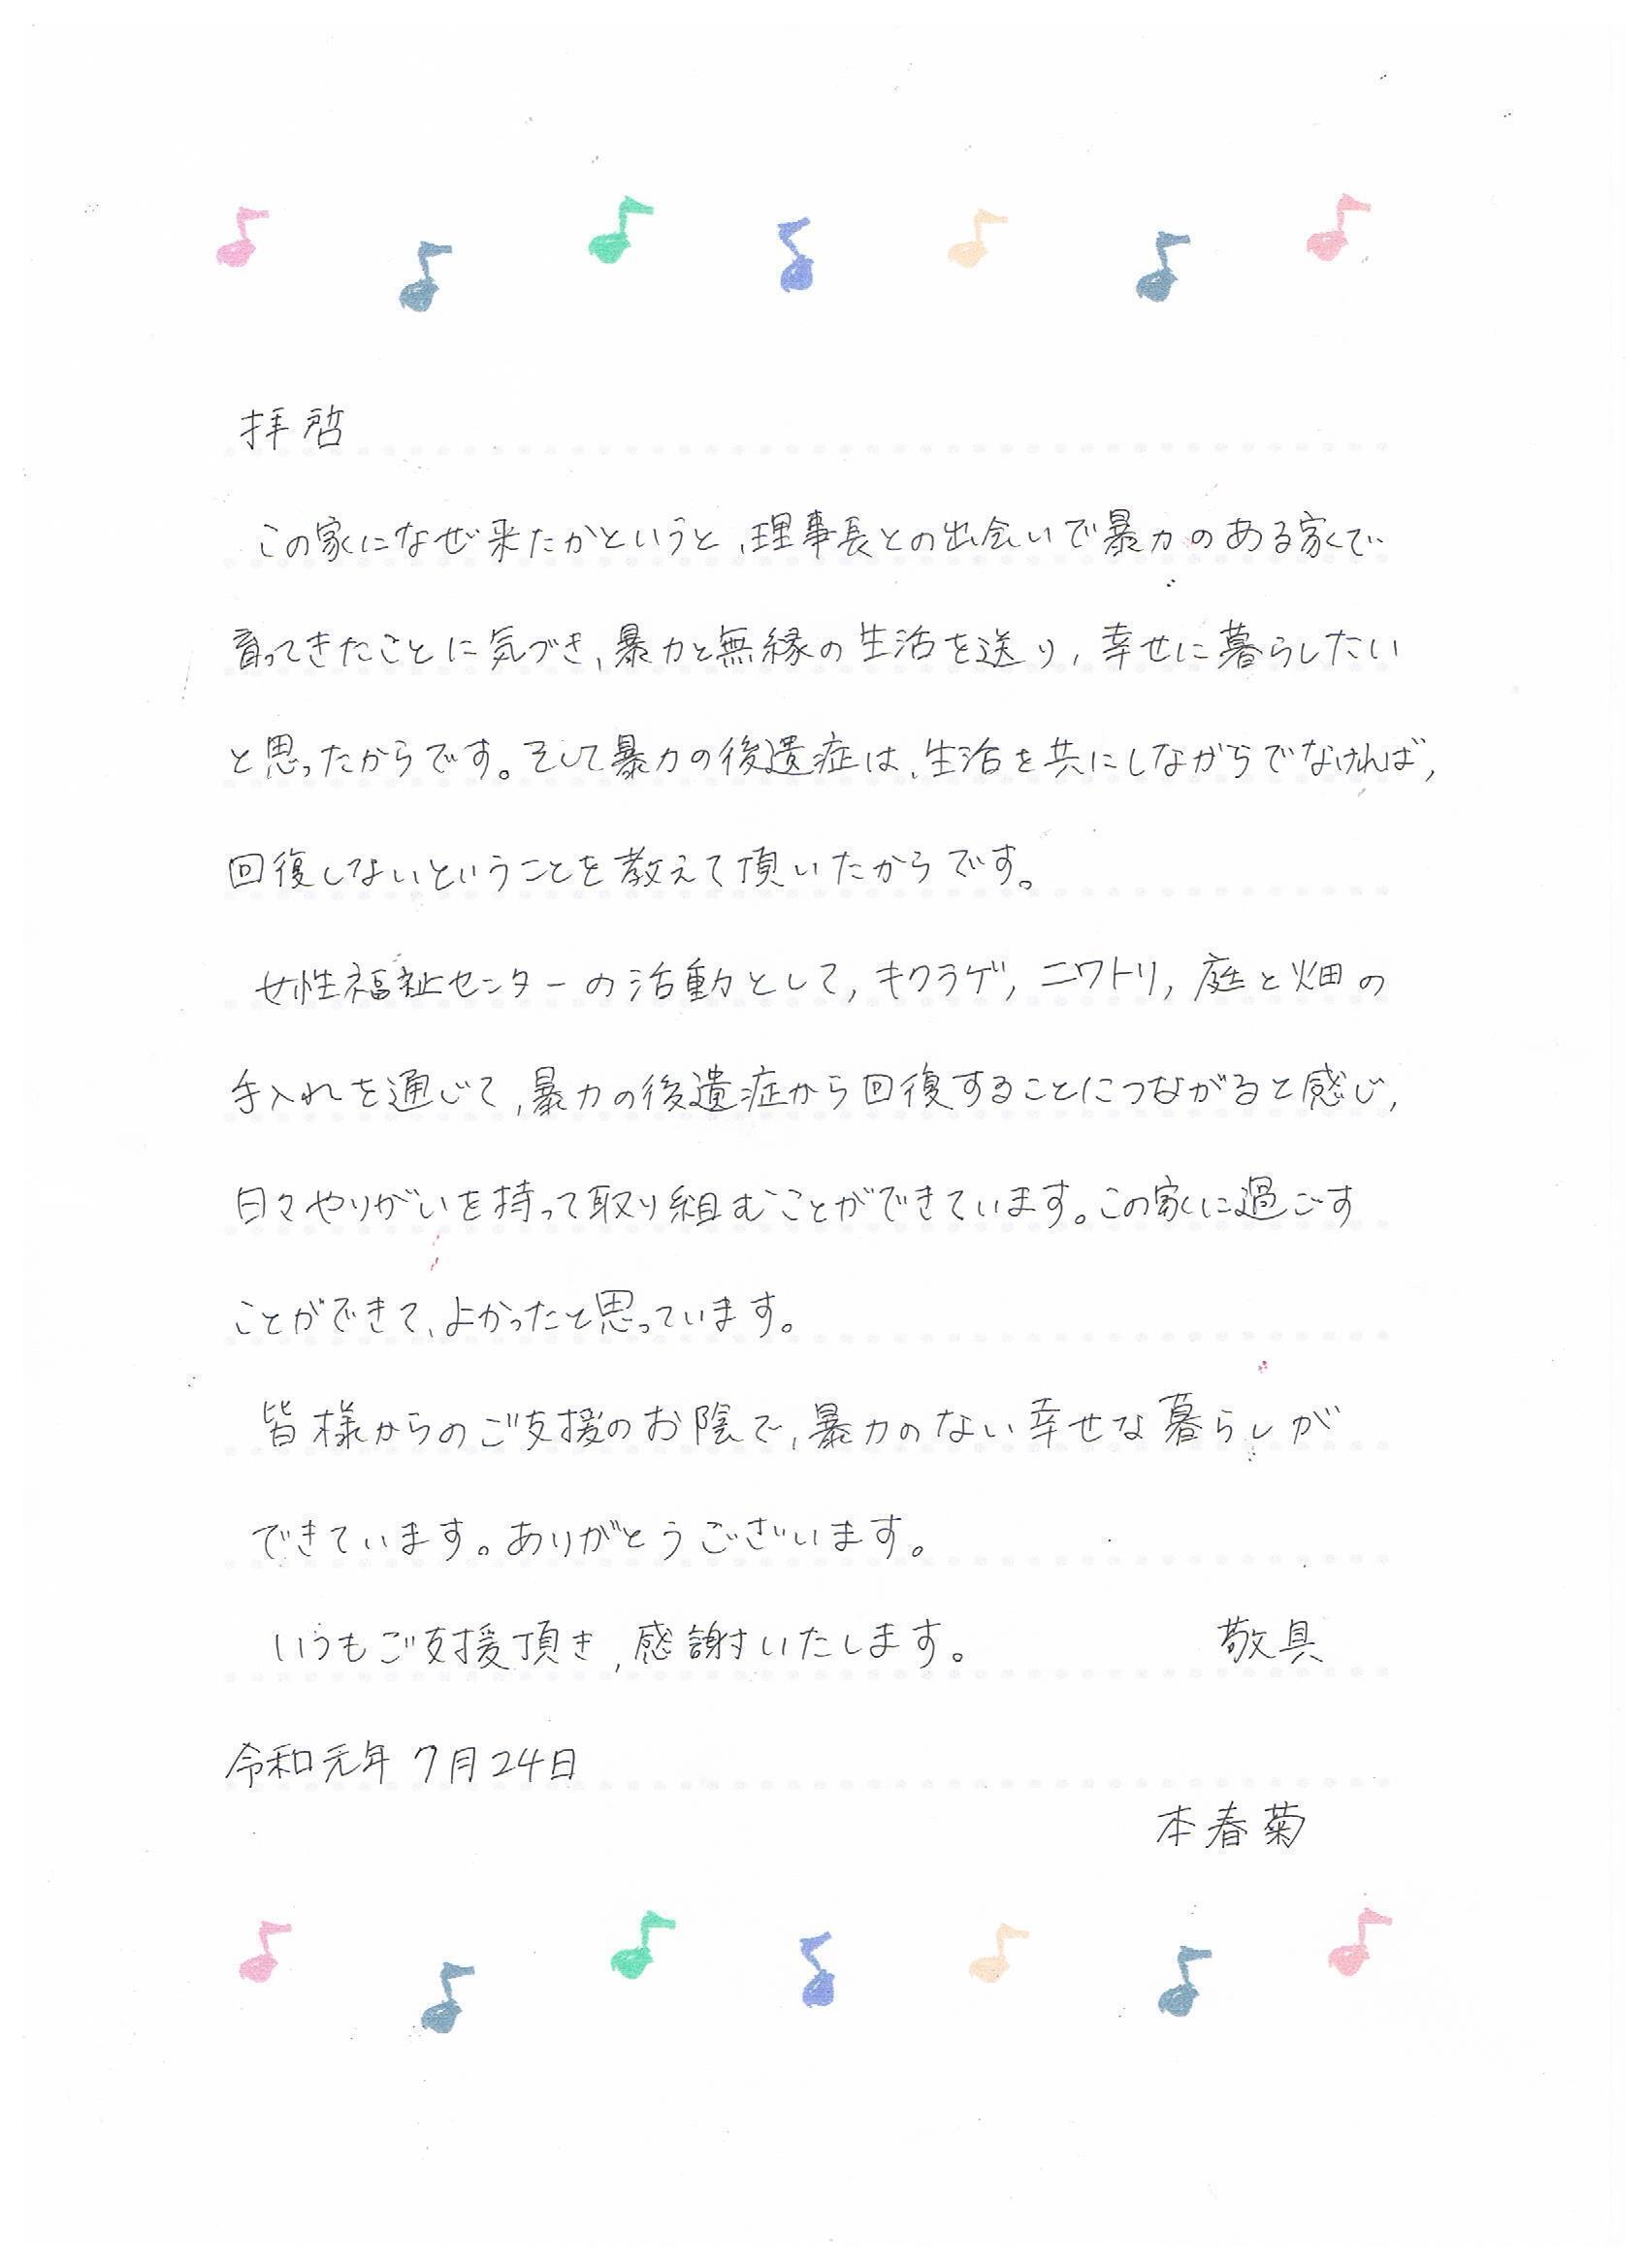 拝啓
この家になぜ来たかというと、理事長との出会いで暴力のある家で
育ってきたことに気づき、暴力と無縁の生活を送り、幸せに暮らしたい
と思ったからです。そして暴力の後遺症は、生活を共にしながらでなければ、
回復しないということを教えて頂いたからです。
女性福祉センターの活動として、キクラゲ、ニワトリ、庭と畑の
手入れを通じて、暴力の後遺症から回復することにつながると感じ、
日々やりがいを持って取り組むことができています。この家に過ごす
ことができて、よかったと思っています。
皆様からのご支援のお陰で、暴力のない幸せな暮らしが
できています。ありがとうございます。
いつもご支援頂き、感謝いたします。 敬具
令和元年7月24日
本春菊